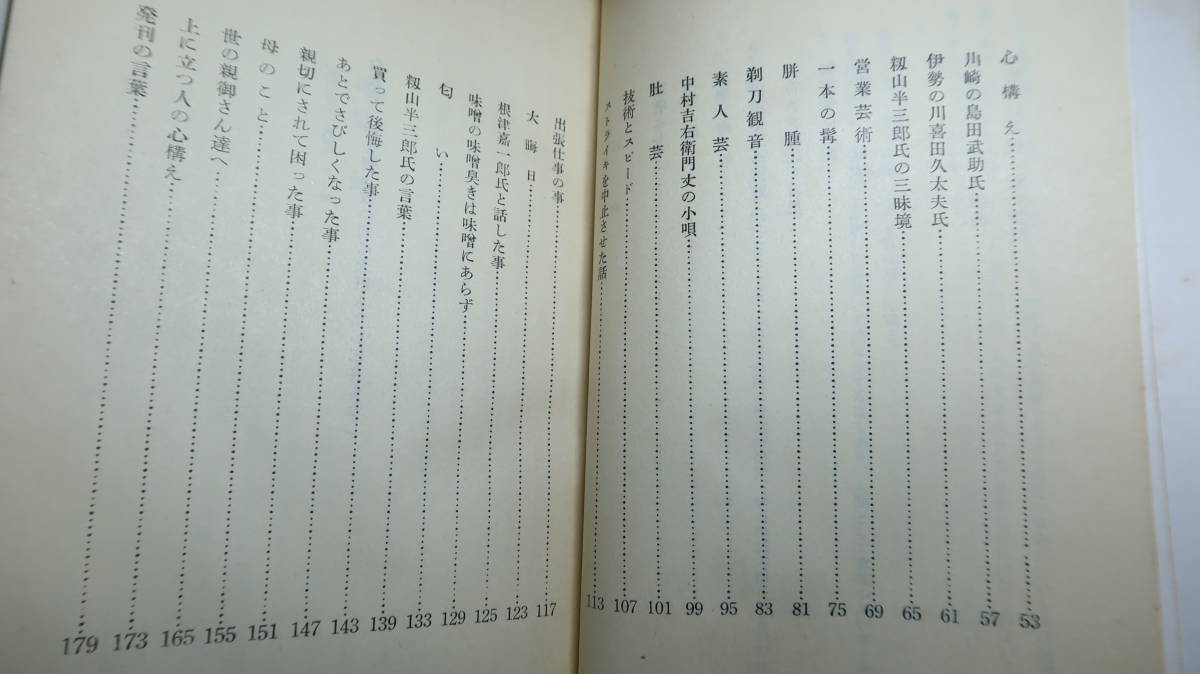 心構え……53
川崎の島田武助氏……57
伊勢の川喜田久太夫氏……61
籾山半三郎氏の三昧境……65
営業芸術……69
一本の髯……75
胼腫……81
剃刀観音……83
素人芸……95
中村吉右衛門丈の小唄……99
肚芸……101
技術とスピード……107
ストライキを中止させた話……113
出張仕事の事……117
大晦日……123
根津嘉一郎氏と話した事……125
味噌の味噌臭きは味噌にあらず……129
匂い……133
籾山半三郎氏の言葉……139
買って後悔した事……143
あとでさびしくなった事……147
親切にされて困った事……151
母のこと……155
世の親御さん達へ……165
上に立つ人の心構え……173
発刊の言葉……179